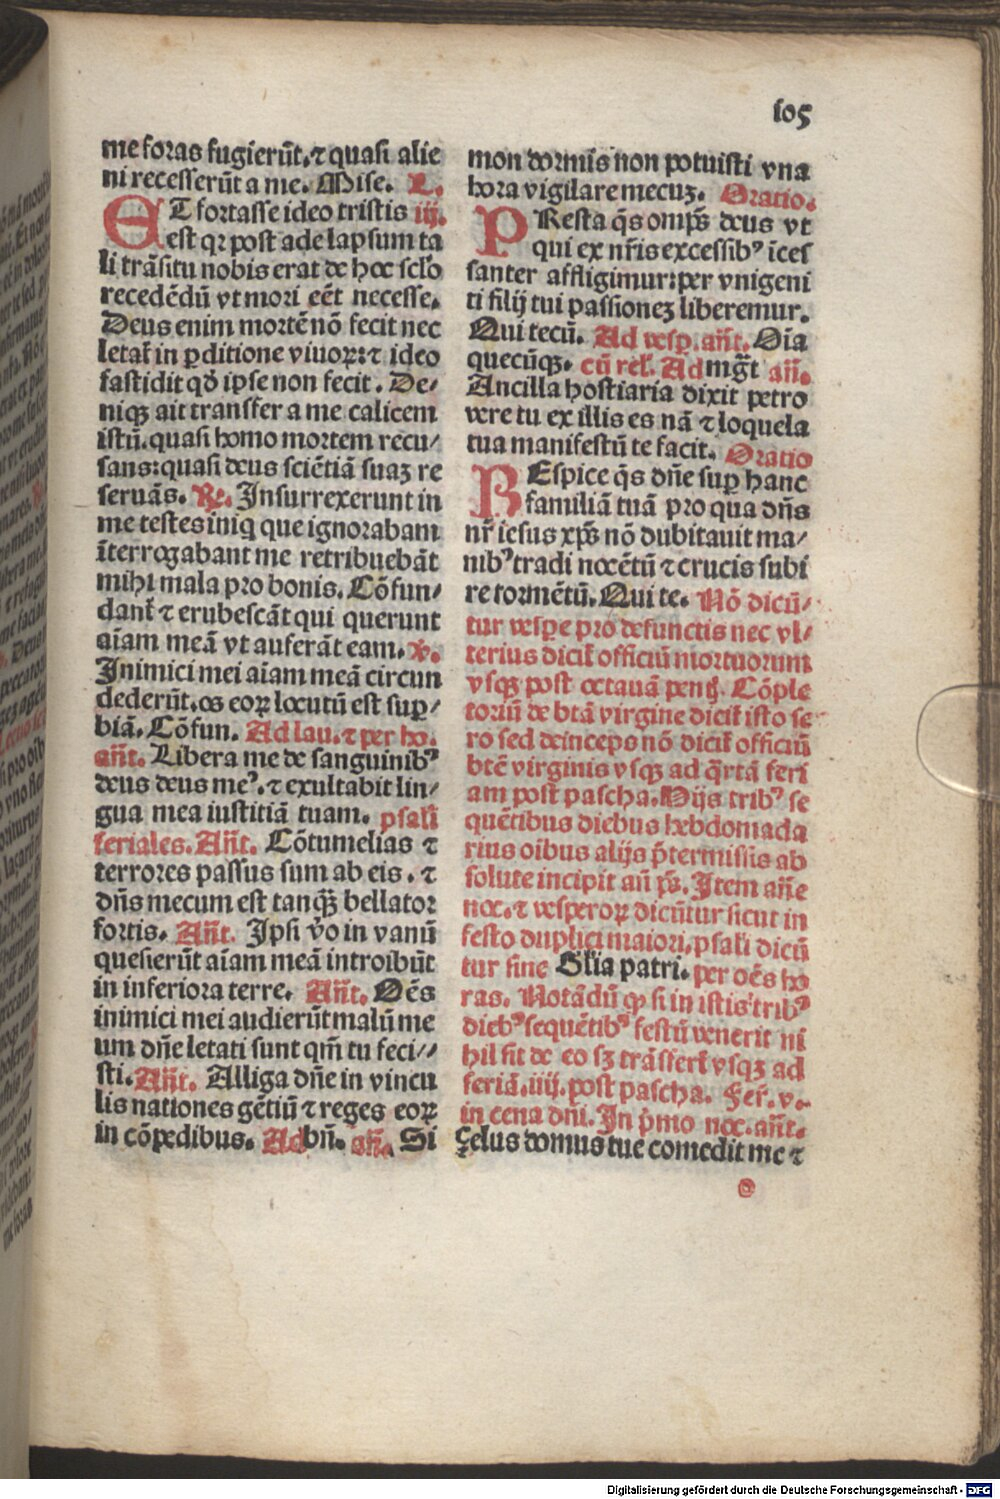 105
me foras fugierūt. ⁊ quasi alie
ni recesserūt a me. Mise. L.
ET fortasse ideo tristis iij.
est qꝛ post ade lapsum ta
li trāsitu nobis erat de hoc sclo
recedēdū vt mori eēt necesse.
Deus enim mortē nō fecit nec
letat̄ in ꝑditione viuoꝝ: ⁊ ideo
fastidit qd̄ ipse non fecit. De/
niqꝫ ait transfer a me calicem
istū. quasi homo mortem recu/
sans: quasi deus sciētiā suaꝫ re
seruās. ℟. Insurrexerunt in
me testes iniq̄ que ignorabam
īterrogabant me retribuebāt
mihi mala pro bonis. Cōfun/
dant̄ ⁊ erubescāt qui querunt
aīam meā vt auferāt eam. ℣.
Inimici mei aīam meā circun
dederūt. os eoꝝ locutū est suꝑ/
biā. Cōfun. Ad lau. ⁊ per ho.
añt. Libera me de sanguinibꝰ
deus deus meꝰ. ⁊ exultabit lin/
gua mea iustitiā tuam. psali
feriales. Añt. Cōtumelias ⁊
terrores passus sum ab eis. ⁊
dñs mecum est tanqꝫ bellator
fortis. Añt. Ipsi v̄o in vanū
quesierūt aīam meā introibūt
in inferiora terre. Añt. Oēs
inimici mei audierūt malū me
um dñe letati sunt qm̄ tu feci//
sti. Añt. Alliga dñe in vincu
lis nationes gētiū ⁊ reges eoꝝ
in cōpedibus. Ad bñ. añ. Si
mon dormis non potuisti vna
hora vigilare mecuꝫ. Oratio.
PResta q̄s omps̄ deus vt
qui ex nr̄is excessibꝰ īces
santer affligimur: per vnigeni
ti filij tui passioneꝫ liberemur.
Qui tecū. Ad vesꝑ. añt. Oīa
quecūqꝫ. cū rel. Ad mgt̄ añ.
Ancilla hostiaria dixit petro
vere tu ex illis es nā ⁊ loquela
tua manifestū te facit. Oratio
REspice q̄s dñe suꝑ hanc
familiā tuā pro qua dñs
nr̄ iesus xp̄s nō dubitauit ma/
nibꝰ tradi nocētū ⁊ crucis subi
re tormētū. Qui te. Nō dicū/
tur vesꝑe pro defunctis nec vl/
terius dicit̄ officiū mortuorum
vsqꝫ post octauā pent̄. Cōple
toriū de btā virgine dicit̄ isto se
ro sed deinceps nō dicit̄ officiū
btē virginis vsqꝫ ad q̄rtā feri
am post pascha. Hijs tribꝰ se
quētibus diebus hebdomada
rius oībus alijs p̄termissis ab
solute incipit añ ps̄. Item añe
noc. ⁊ vesperoꝝ dicūtur sicut in
festo duplici maiori. psali dicū
tur sine Glīa patri. per oēs ho
ras. Notādū ꝙ si in istis tribꝰ
diebꝰ sequētibꝰ festū venerit ni
hil fit de eo sꝫ trāsfert̄ vsqꝫ ad
feriā. iiij. post pascha. Fer̄. v.
in cena dñi. In p̄mo noc. añt.
Zelus domus tue comedit me ⁊
Digitalisierung gefördert durch die Deutsche Forschungsgemeinschaft - DFG